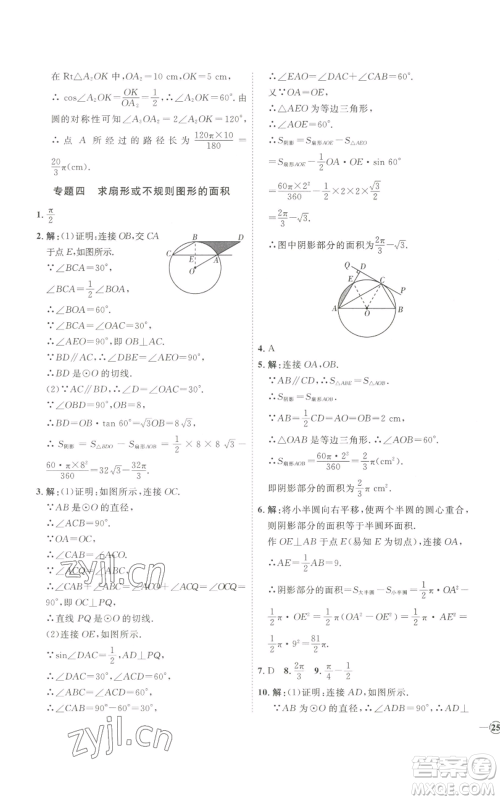 在 Rt△A₂OK 中，OA₂=10 cm，OK=5 cm，
∴ cos∠A₂OK=OK/OA₂=1/2，∴ ∠A₂OK=60°. 由
圆的对称性可知 ∠A₁OA₂=2∠A₂OK=120°，
∴ 点 A 所经过的路径长为 120π×10/180=
20/3 π(cm).
专题四 求扇形或不规则图形的面积
1. π/2
2. 解：(1)证明：连接 OB，交 CA
于点 E，如图所示.
∵∠BCA=30°，
∠BCA=1/2∠BOA，
∴∠BOA=60°.
∵∠BCA=∠OAC=30°，
∴∠AEO=90°.
∵BD∥AC，∴∠DBE=∠AEO=90°.
∴BD 是⊙O 的切线.
(2)∵AC∥BD，∴∠D=∠CAO=30°.
∵∠OBD=90°，OB=8，
∴BD=OB·tan 60°=√3OB=8√3.
∴ S阴影 = S△BDO − S扇形AOB = 1/2 × 8 × 8√3 −
60·π×8²/360=32√3−32π/3.
3. 解：(1)证明：如图所示，连接 OC.
∵AB 是⊙O 的直径，
∴∠ACB=90°.
∵OA=OC，
∴∠CAB=∠ACO.
∴∠CAB+∠ACQ=∠ACO+∠ACQ=∠OCQ=90°，
即 OC⊥PQ.
∴直线 PQ 是⊙O 的切线.
(2)连接 OE，如图所示.
∵sin∠DAC=1/2，
∴∠DAC=30°.
∴∠ACD=∠ABC=60°.
∴∠CAB=90°−60°=30°.
∴∠EAO=∠DAC+∠CAB=60°.
又∵OA=OE，
∴△AEO 为等边三角形，
∴∠AOE=60°.
∴S阴影=S扇形AOE−S△AEO
=60π×2²/360−1/2×2×2×√3/2
=2π/3−√3.
∴图中阴影部分的面积为 2π/3−√3.
4. A
5. 解：连接 OA，OB.
∵AB∥CD，∴S△ABE=S△ABO.
∴S阴影=S扇形AOB.
∵OA=OB=AB=2，
∴△OAB 是等边三角形，
∴∠AOB=60°.
∴S阴影=S扇形AOB=60π·2²/360=2/3 π，
即阴影部分的面积为 2/3 π.
6. 解：将小半圆向右平移，使两个半圆的圆心重合，
则阴影部分的面积等于半圆环面积.
作 OE⊥AB 于点 E(易知 E 为切点)，连接 OA，
∴AE=1/2AB=9.
∴阴影部分的面积=S大半圆−S小半圆=1/2π·OA²−
1/2π·OE²=1/2π(OA²−OE²)=1/2π·AE²=
1/2π·9²=81/2 π.
7. D 8. 2/3 9. π/4−1/2
10. 解：(1)证明：如图所示，连接 AD.
∵AB 为⊙O 的直径，∴∠ADB=90°，AD⊥
25
zyjl.cn
zyjl.cn
答案圈
MXQE.COM